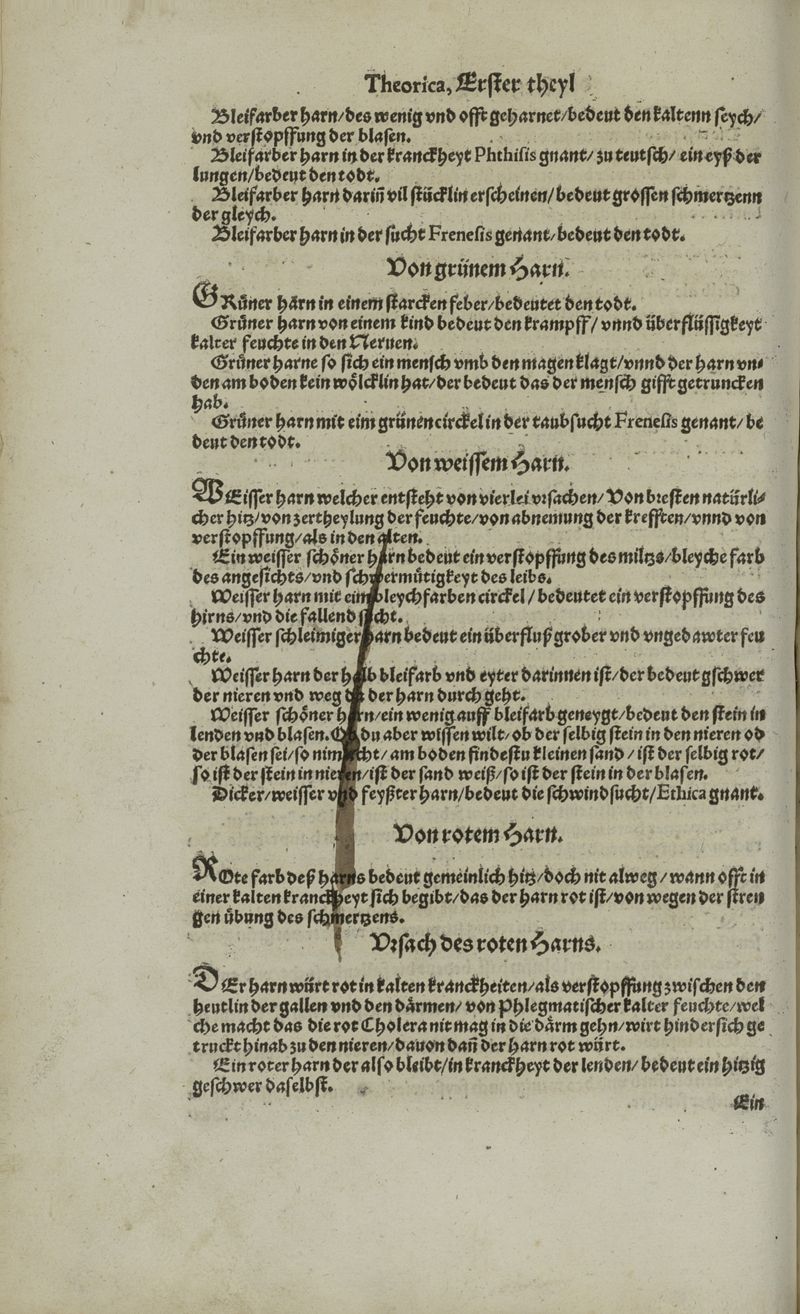 Theorica, Erster theyl
Bleifarber harn/des wenig vnd offt geharnet/bedeut den kaltenn seych/
vnd verstopffung der blasen.
Bleifarber harn in der kranckheyt Phthisis gnant/zu teutsch/ ein eyß der
lungen/bedeut den todt.
Bleifarber harn dariñ vil stücklin erscheinen/bedeut grossen schmertzenn
der gleych.
Bleifarber harn in der sucht Frenesis genant/bedeut den todt.
Von grünem Harn.
GRüner harn in einem starcken feber/bedeutet den todt.
Grüner harn von einem kind bedeut den krampff/ vnnd überflüssigkeyt
kalter feuchte in den Neruen.
Grüner harne so sich ein mensch vmb den magen klagt/vnnd der harn vn⸗
den am boden kein wölcklin hat/der bedeut das der mensch gifft getruncken
hab.
Grüner harn mit eim grünen circkel in der taubsucht Frenesis genant/be
deut den todt.
Von weissem Harn.
WEisser harn welcher entsteht von vierlei vrsachen/Von bresten natürli⸗
cher hitz/von zertheylung der feuchte/von abnemung der krefften/vnnd von
verstopffung/als in den alten.
Ein weisser schöner harn bedeut ein verstopffung des miltzs/bleyche farb
des angesichts/vnd schwermütigkeyt des leibs.
Weisser harn mit eim bleychfarben circkel/bedeutet ein verstopffung des
hirns/vnd die fallend sucht.
Weisser schleimiger harn bedeut ein überfluß grober vnd vngedawter feu
chte.
Weisser harn der halb bleifarb vnd eyter darinnen ist/der bedeut gschwer
der nieren vnd weg da der harn durch geht.
Weisser schöner harn/ein wenig auff bleifarb geneygt/bedeut den stein in
lenden vnd blasen. Ob du aber wissen wilt/ob der selbig stein in den nieren od
der blasen sei/so nim acht/am boden findestu kleinen sand/ist der selbig rot/
so ist der stein in nieren/ist der sand weiß/so ist der stein in der blasen.
Dicker/weisser vnd feyßter harn/bedeut die schwindsucht/Ethica gnant.
Von rotem Harn.
ROte farb deß harns bedeut gemeinlich hitz/doch nit alweg/wann offt in
einer kalten kranckheyt sich begibt/das der harn rot ist/von wegen der stren
gen übung des schmertzens.
Vrsach des roten Harns.
DEr harn würt rot in kalten kranckheiten/als verstopffung zwischen den
heutlin der gallen vnd den därmen/von Phlegmatischer kalter feuchte/wel
che macht das die rot Cholera nit mag in die därm gehn/wirt hindersich ge
truckt hinab zu den nieren/dauon dañ der harn rot würt.
Ein roter harn der also bleibt/in kranckheyt der lenden/bedeut ein hitzig
geschwer daselbst.
Ein